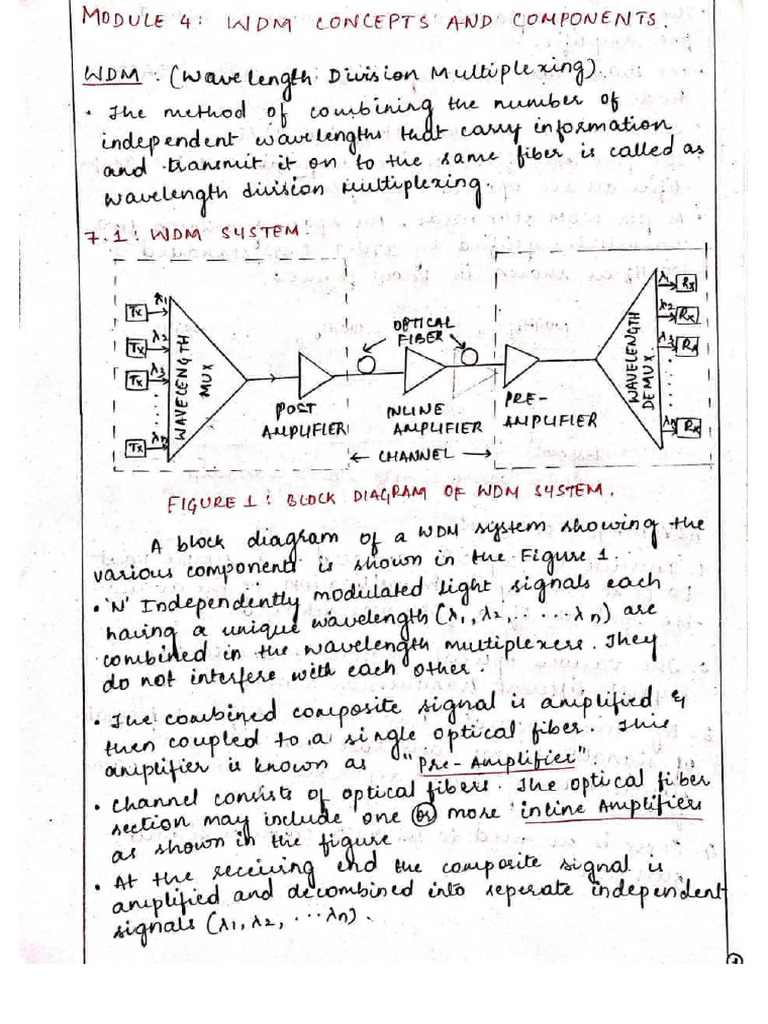 MODULE 4: WDM CONCEPTS AND COMPONENTS.
WDM. (Wavelength Division Multiplexing).
• The method of combining the number of
independent wavelengths that carry information
and transmit it on to the same fiber is called as
wavelength division Multiplexing.
7.1: WDM SYSTEM.
Tx λ1
Tx λ2
Tx λ3
Tx λn
WAVELENGTH
MUX
POST
AMPLIFIER
OPTICAL
FIBER
INLINE
AMPLIFIER
PRE-
AMPLIFIER
← CHANNEL →
WAVELENGTH
DEMUX.
λ1 Rx
λ2 Rx
λ3 Rx
λn Rx
FIGURE 1: BLOCK DIAGRAM OF WDM SYSTEM.
A block diagram of a WDM system showing the
various components is shown in the Figure 1.
• 'N' Independently modulated light signals each
having a unique wavelength (λ1, λ2, ..... λn) are
combined in the wavelength multiplexers. They
do not interfere with each other.
• The combined composite signal is amplified &
then coupled to a single optical fiber. This
amplifier is known as "Pre-Amplifier".
• Channel consists of optical fibers. The optical fiber
section may include one or more inline Amplifiers
as shown in the figure
• At the receiving end the composite signal is
amplified and decombined into seperate independent
signals (λ1, λ2, ... λn).
1